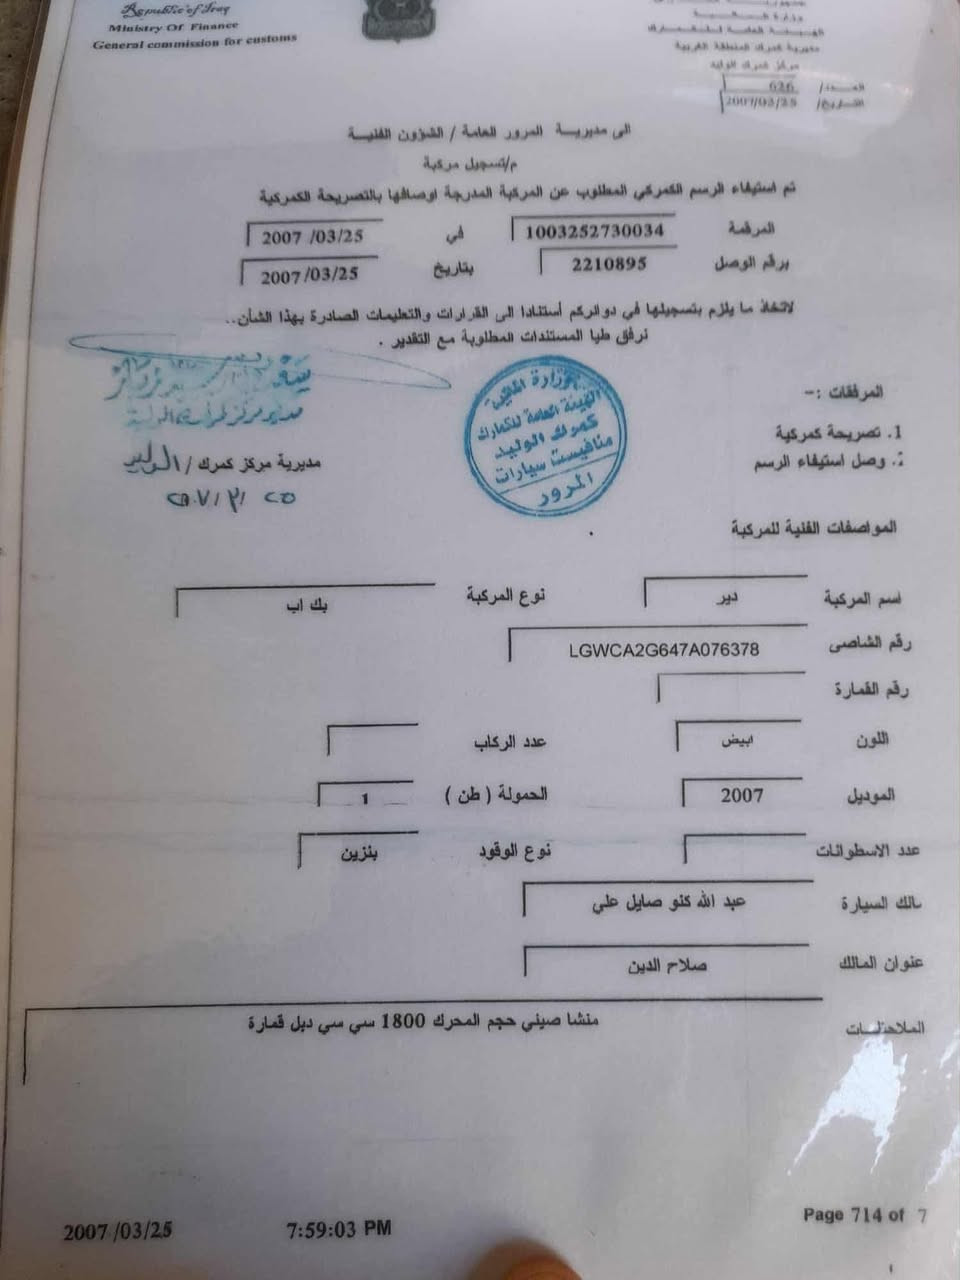 Republic of Iraq
Ministry Of Finance
General commission for customs
وزارة المالية
الهيئة العامة للكمارك
مديرية كمرك المنطقة الغربية
مركز كمرك الوليد
العدد/ 626
التاريخ/ 2007/03/25
الى مديرية المرور العامة / الشؤون الفنية
م/تسجيل مركبة
تم استيفاء الرسم الكمركي المطلوب عن المركبة المدرجة اوصافها بالتصريحة الكمركية
المرقمة 1003252730034 في 2007 /03/25
برقم الوصل 2210895 بتاريخ 2007/03/25
لاتخاذ ما يلزم بتسجيلها في دوائركم أستنادا الى القرارات والتعليمات الصادرة بهذا الشأن..
نرفق طيا المستندات المطلوبة مع التقدير .
وزارة المالية
الهيئة العامة للكمارك
كمرك الوليد
منافيست سيارات
المرور
المرفقات :-
1. تصريحة كمركية
وصل استيفاء الرسم
مديرية مركز كمرك / الوليد
٢٠٠٧/٣/٢٥
المواصفات الفنية للمركبة
اسم المركبة دير نوع المركبة بك اب
رقم الشاصى LGWCA2G647A076378
رقم القمارة
اللون ابيض عدد الركاب
الموديل 2007 الحمولة ( طن ) 1
عدد الاسطوانات نوع الوقود بنزين
مالك السيارة عبد الله كنو صايل علي
عنوان المالك صلاح الدين
الملاحظات منشا صيني حجم المحرك 1800 سي سي دبل قمارة
2007 /03/25 7:59:03 PM Page 714 of 7